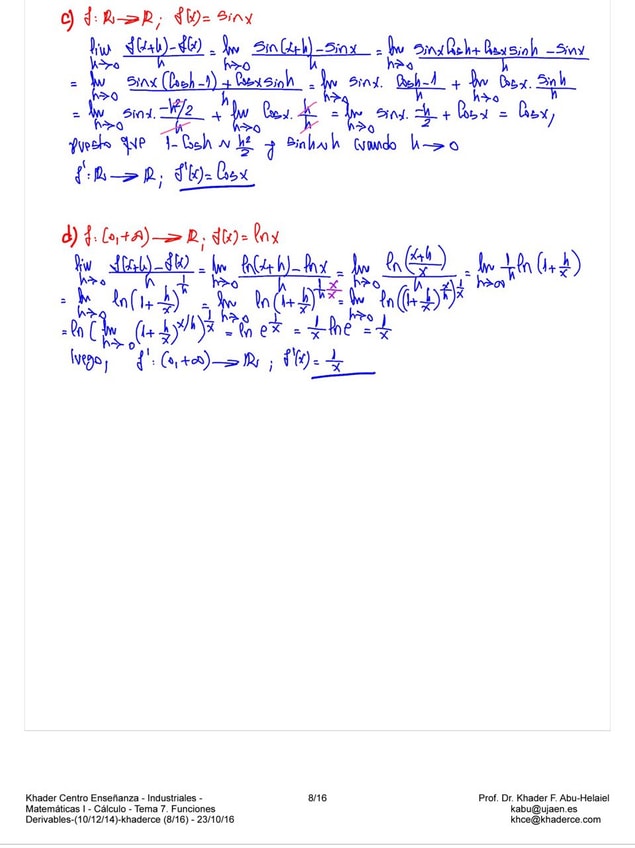 c) f: ℝ → ℝ; f(x) = sinx
lim h→0 (f(x+h) - f(x))/h = lim h→0 (sin(x+h) - sinx)/h = lim h→0 (sinx Cosh + Cosx sinh - sinx)/h
= lim h→0 (sinx (Cosh - 1) + Cosx sinh)/h = lim h→0 sinx · (Cosh - 1)/h + lim h→0 Cosx · sinh/h
= lim h→0 sinx · (-h²/2)/h + lim h→0 Cosx · h/h = lim h→0 sinx · -h/2 + Cosx = Cosx,
puesto que 1 - Cosh ~ h²/2 y sinh ~ h cuando h → 0
f': ℝ → ℝ; f'(x) = Cosx
d) f: (0, +∞) → ℝ; f(x) = lnx
lim h→0 (f(x+h) - f(x))/h = lim h→0 (ln(x+h) - lnx)/h = lim h→0 ln((x+h)/x)/h = lim h→0 1/h ln(1 + h/x)
= lim h→0 ln(1 + h/x)^(1/h) = lim h→0 ln(1 + h/x)^(1/h · x/x) = lim h→0 ln((1 + h/x)^(x/h))^(1/x)
= ln(lim h→0 (1 + h/x)^(x/h))^(1/x) = ln e^(1/x) = 1/x lne = 1/x
luego, f': (0, +∞) → ℝ; f'(x) = 1/x
Khader Centro Enseñanza - Industriales - 8/16 Prof. Dr. Khader F. Abu-Helaiel
Matemáticas I - Cálculo - Tema 7. Funciones kabu@ujaen.es
Derivables-(10/12/14)-khaderce (8/16) - 23/10/16 khce@khaderce.com